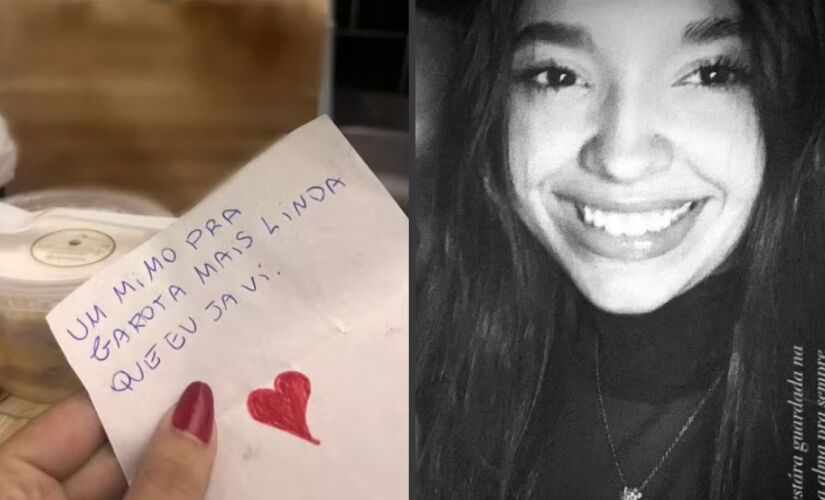 UM MIMO PRA
GAROTA MAIS LINDA
QUE EU JA VI.
stára guardada na
alma pra sempre